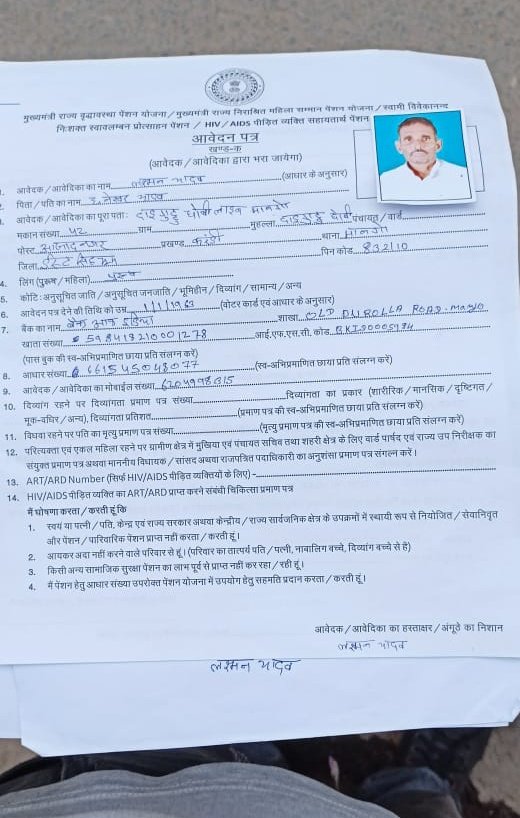 मुख्यमंत्री राज्य वृद्धावस्था पेंशन योजना / मुख्यमंत्री राज्य निराश्रित महिला सम्मान पेंशन योजना / स्वामी विवेकानन्द
निःशक्त स्वावलम्बन प्रोत्साहन पेंशन / HIV/AIDS पीड़ित व्यक्ति सहायतार्थ पेंशन
आवेदन पत्र
खण्ड-क
(आवेदक / आवेदिका द्वारा भरा जायेगा)
आवेदक / आवेदिका का नाम लक्ष्मन यादव (आधार के अनुसार)
2. पिता / पति का नाम यादव
आवेदक / आवेदिका का पूरा पता: दाइगुट्टु धोबी लाइन मानगो
मकान संख्या 42 ग्राम मुहल्ला दाइगुट्टु पंचायत / वार्ड
पोस्ट आजादनगर प्रखण्ड थाना मानगो
जिला पिन कोड 832110
4. लिंग (पुरूष / महिला) पुरुष
5. कोटि: अनुसूचित जाति / अनुसूचित जनजाति / भूमिहीन / दिव्यांग / सामान्य / अन्य
6. आवेदन पत्र देने की तिथि को उम्र 1/1/1963 (वोटर कार्ड एवं आधार के अनुसार)
7. बैंक का नाम बैंक आफ इंडिया शाखा OLD ROAD
खाता संख्या आई.एफ.एस.सी. कोड
(पास बुक की स्व-अभिप्रमाणित छाया प्रति संलग्न करें)
8. आधार संख्या 661545048077 (स्व-अभिप्रमाणित छाया प्रति संलग्न करें)
9. आवेदक / आवेदिका का मोबाईल संख्या
10. दिव्यांग रहने पर दिव्यांगता प्रमाण पत्र संख्या दिव्यांगता का प्रकार (शारीरिक / मानसिक / दृष्टिगत /
मूक-वधिर / अन्य), दिव्यांगता प्रतिशत (प्रमाण पत्र की स्व-अभिप्रमाणित छाया प्रति संलग्न करें)
11. विधवा रहने पर पति का मृत्यु प्रमाण पत्र संख्या (मृत्यु प्रमाण पत्र की स्व-अभिप्रमाणित छाया प्रति संलग्न करें)
12. परित्यक्ता एवं एकल महिला रहने पर ग्रामीण क्षेत्र में मुखिया एवं पंचायत सचिव तथा शहरी क्षेत्र के लिए वार्ड पार्षद एवं राज्य उप निरीक्षक का
संयुक्त प्रमाण पत्र अथवा माननीय विधायक / सांसद अथवा राजपत्रित पदाधिकारी का अनुशंसा प्रमाण पत्र संलग्न करें।
13. ART/ARD Number (सिर्फ HIV/AIDS पीड़ित व्यक्तियों के लिए) -
14. HIV/AIDS पीड़ित व्यक्ति का ART/ARD प्राप्त करने संबंधी चिकित्सा प्रमाण पत्र
मैं घोषणा करता / करती हूँ कि
1. स्वयं या पत्नी / पति, केन्द्र एवं राज्य सरकार अथवा केन्द्रीय / राज्य सार्वजनिक क्षेत्र के उपक्रमों में स्थायी रूप से नियोजित / सेवानिवृत
और पेंशन / पारिवारिक पेंशन प्राप्त नहीं करता / करती हूँ।
2. आयकर अदा नहीं करने वाले परिवार से हूं। (परिवार का तात्पर्य पति / पत्नी, नाबालिग बच्चे, दिव्यांग बच्चे से है)
3. किसी अन्य सामाजिक सुरक्षा पेंशन का लाभ पूर्व से प्राप्त नहीं कर रहा / रही हूं।
4. मैं पेंशन हेतु आधार संख्या उपरोक्त पेंशन योजना में उपयोग हेतु सहमति प्रदान करता / करती हूं।
आवेदक / आवेदिका का हस्ताक्षर / अंगूठे का निशान
लक्ष्मन यादव
लक्ष्मन यादव